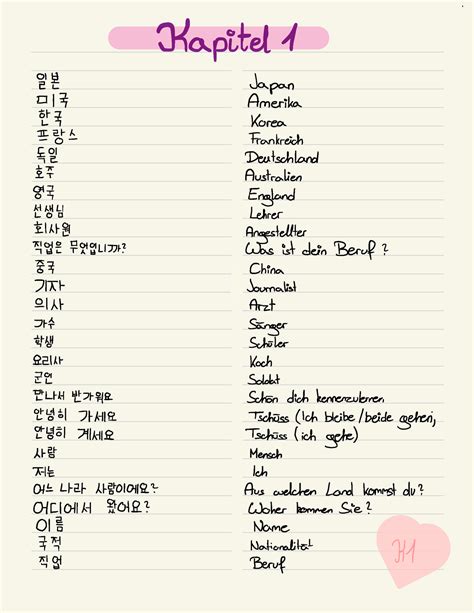 Kapitel 1
일본 Japan
미국 Amerika
한국 Korea
프랑스 Frankreich
독일 Deutschland
호주 Australien
영국 England
선생님 Lehrer
회사원 Angestellter
직업은 무엇입니까? Was ist dein Beruf?
중국 China
기자 Journalist
의사 Arzt
가수 Sänger
학생 Schüler
요리사 Koch
군인 Soldat
만나서 반가워요 Schön dich kennenzulernen
안녕히 가세요 Tschüss (Ich bleibe/beide gehen,
안녕히 계세요 Tschüss (ich gehe)
사람 Mensch
저는 Ich
어느 나라 사람이에요? Aus welchen Land kommst du?
어디에서 왔어요? Woher kommen Sie?
이름 Name
국적 Nationalität
직업 Beruf